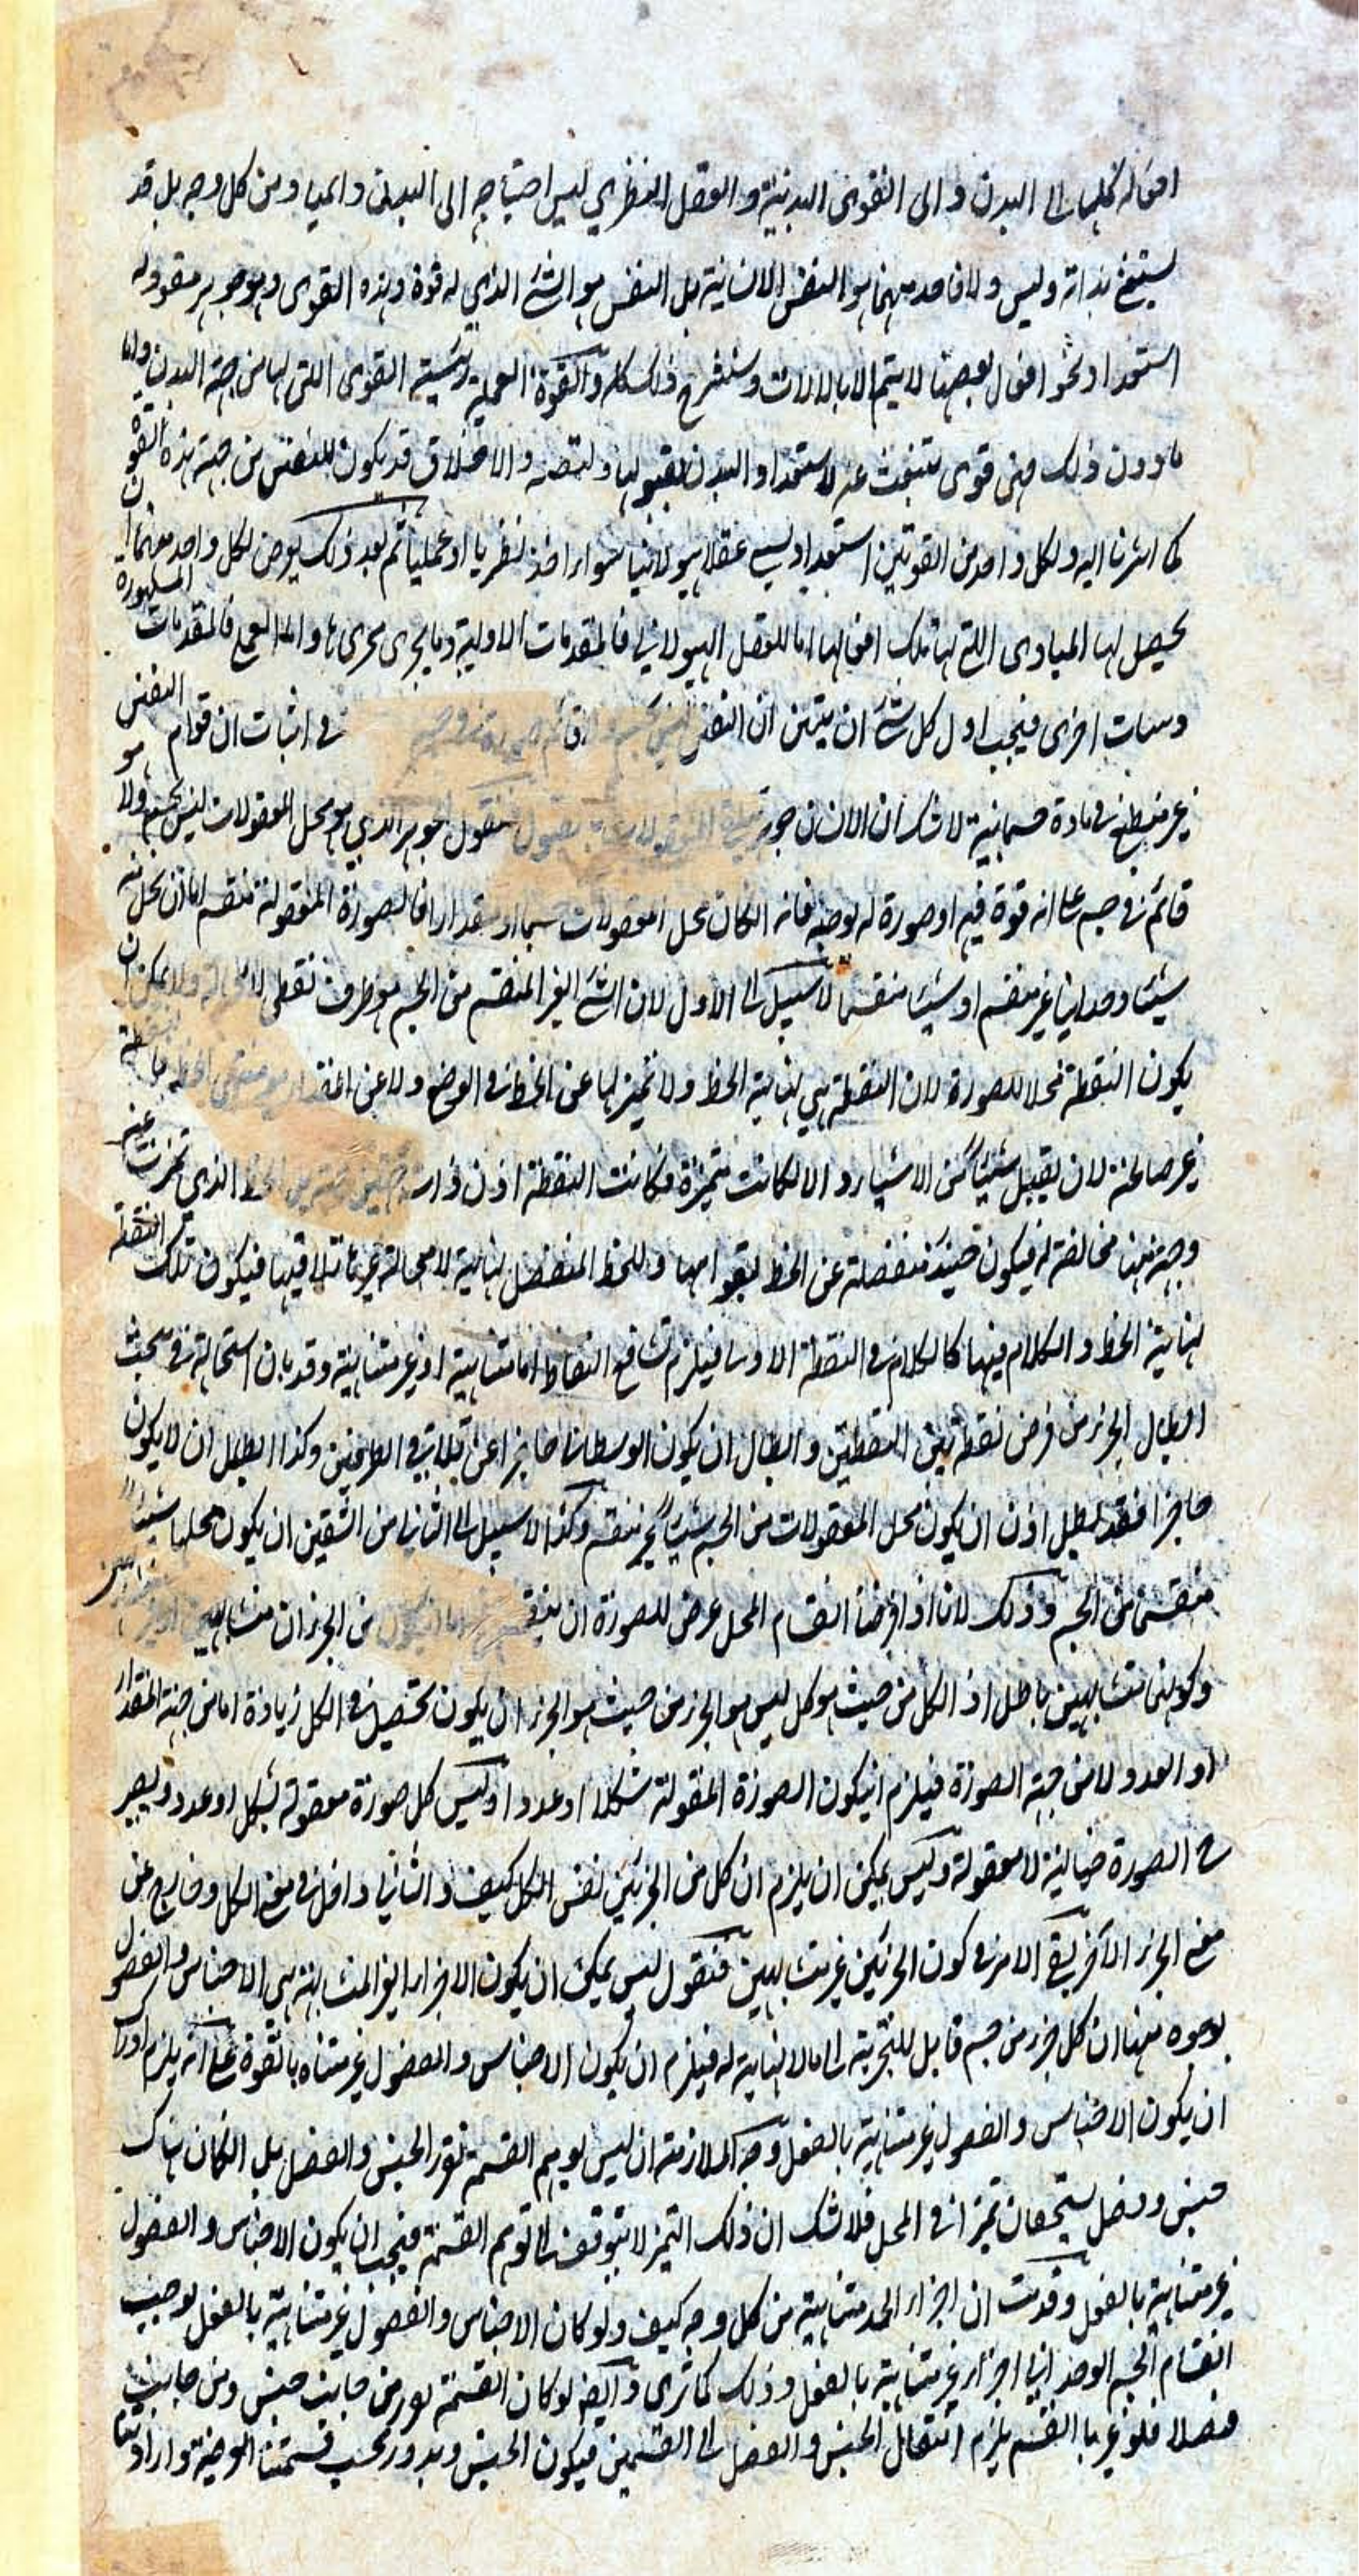 افعاله كلها الى البدن والى القوى البدنية والعقل النظري ليس احتياجه الى البدن دائما ومن كل وجه بل قد
يستغنى بذاته وليس ولا واحد منهما هو النفس الانسانية بل النفس هو الشئ الذي له قوة وهذه القوى وهو جوهر منفرد له
استعداد نحو افعال بعضها لا يتم الا بالالات وسنشرح ذلك كله والقوة العملية رئيسة القوى التي لها من جهة البدن واما
ما دون ذلك فهى قوى تنبعث عنه لاستعداد البدن لقبولها والاخلاق قد يكون للنفس من جهة هذه القوة
كما اشرنا اليه ولكل واحد من القوتين استعداد يسمى عقلا هيولانيا سواء اخذ نظريا او عمليا ثم بعد ذلك يعرض لكل واحد منهما ان
يحصل لها المبادى التى بها تكمل افعالها اما للعقل الهيولاني فالمقدمات الاولية وما يجرى مجرى وما للعملى فالمقدمات المشهورة
وهيئات اخرى فيجب اول كل شئ ان يتبين ان النفس ليس بجسم ولا قائم في اثبات ان قوام النفس هو
غير منطبع في مادة جسمانية لا شك ان الانسان جوهر فنقول الجوهر الذي هو محل المعقولات ليس بجسم ولا
قائم في جسم على انه قوة فيه او صورة له بوجه فانه ان كان محل المعقولات جسما او مقدارا فالصورة المعقولة منقسم اما ان تحل منه
شيئا وحدانيا غير منقسم او شيئا منقسما لا سبيل الى الاول لان الشئ الغير المنقسم من الجسم هو طرف نقطى لا محالة ولا يمكن ان
يكون النقطة محلا للصورة لان النقطة هي نهاية الخط ولا تميز لها عن الخط في الوضع ولا عن المقدار
غير صالحة لان يقبل شيئا من الاشياء والا لكانت متميزة فكانت النقطة اذن ذات جهتين الخط الذي تميزت عنه
وجهة منها مخالفة له فيكون حينئذ منفصلة عن الخط بقوامها وللخط المنفصل نهاية لا محالة غيرها تلاقيها فيكون تلك النقطة
نهاية الخط والكلام فيها كالكلام في النقطة الاولى فيلزم تشافع النقاط اما متناهية او غير متناهية وقد بان استحالة في مبحث
ابطال الجزء من فرض نقطة بين النقطتين وابطال ان يكون الوسطانى حاجزا عن تلاقى الطرفين وكذا ابطال ان لا يكون
حاجزا فقد بطل اذن ان يكون محل المعقولات من الجسم شيئا غير منقسم وكذا لا سبيل الى الثاني من الشقين ان يكون محلها شيئا
منقسما من الجسم وذلك لانا اذا فرضنا انقسام المحل عرض للصورة ان ينقسم اما ان يكون من الجزءان متشابهين
وكونهما متشابهين باطل اذ الكل من حيث هو كل ليس هو الجزء من حيث هو الجزء ان يكون تحصيل في الكل زيادة اما من جهة المقدار
او العدد ولا من جهة الصورة فيلزم ان يكون الصورة المعقولة شكلا او عددا وليس كل صورة معقولة بشكل او عدد ويصير
ح الصورة خيالية لا معقولة وليس يمكن ان يلزم ان كل من الجزئين نفس الكل كيف والثاني داخل في معنى الكل وخارج عن
معنى الجزء الآخر بقى الامر في كون الجزئين غير متشابهين فنقول ليس يمكن ان يكون الاجزاء الغير المتشابهة هي الاجناس والفصول
بوجوه منها ان كل جزء من جسم قابل للتجزية الى ما لا نهاية له فيلزم ان يكون الاجناس والفصول غير متناه بالقوة على انه يلزم
ان يكون الاجناس والفصول غير متناهية بالفعل وجه الملازمة ان ليس لوهم القسمة تقرر الجنس والفصل بل ان كان هناك
جنس وفصل يستحقان تميزا في المحل فلا شك ان ذلك التميز لا يتوقف الى توهم القسمة فيجب ان يكون الاجناس والفصول
غير متناهية بالفعل وقد ثبت ان اجزاء الحد متناهية من كل وجه كيف ولو كان الاجناس والفصول غير متناهية بالفعل لوجب
انقسام الجسم الواحد اجزاء غير متناهية بالفعل وذلك كما ترى وايضا لو كان القسمة من جانب جنس ومن جانب
فصلا فلو غيرنا القسم يلزم انتقال الجنس والفصل الى القسمين فيكون الجنس ويدور بحسب قسمتنا الوضعية وارادتنا